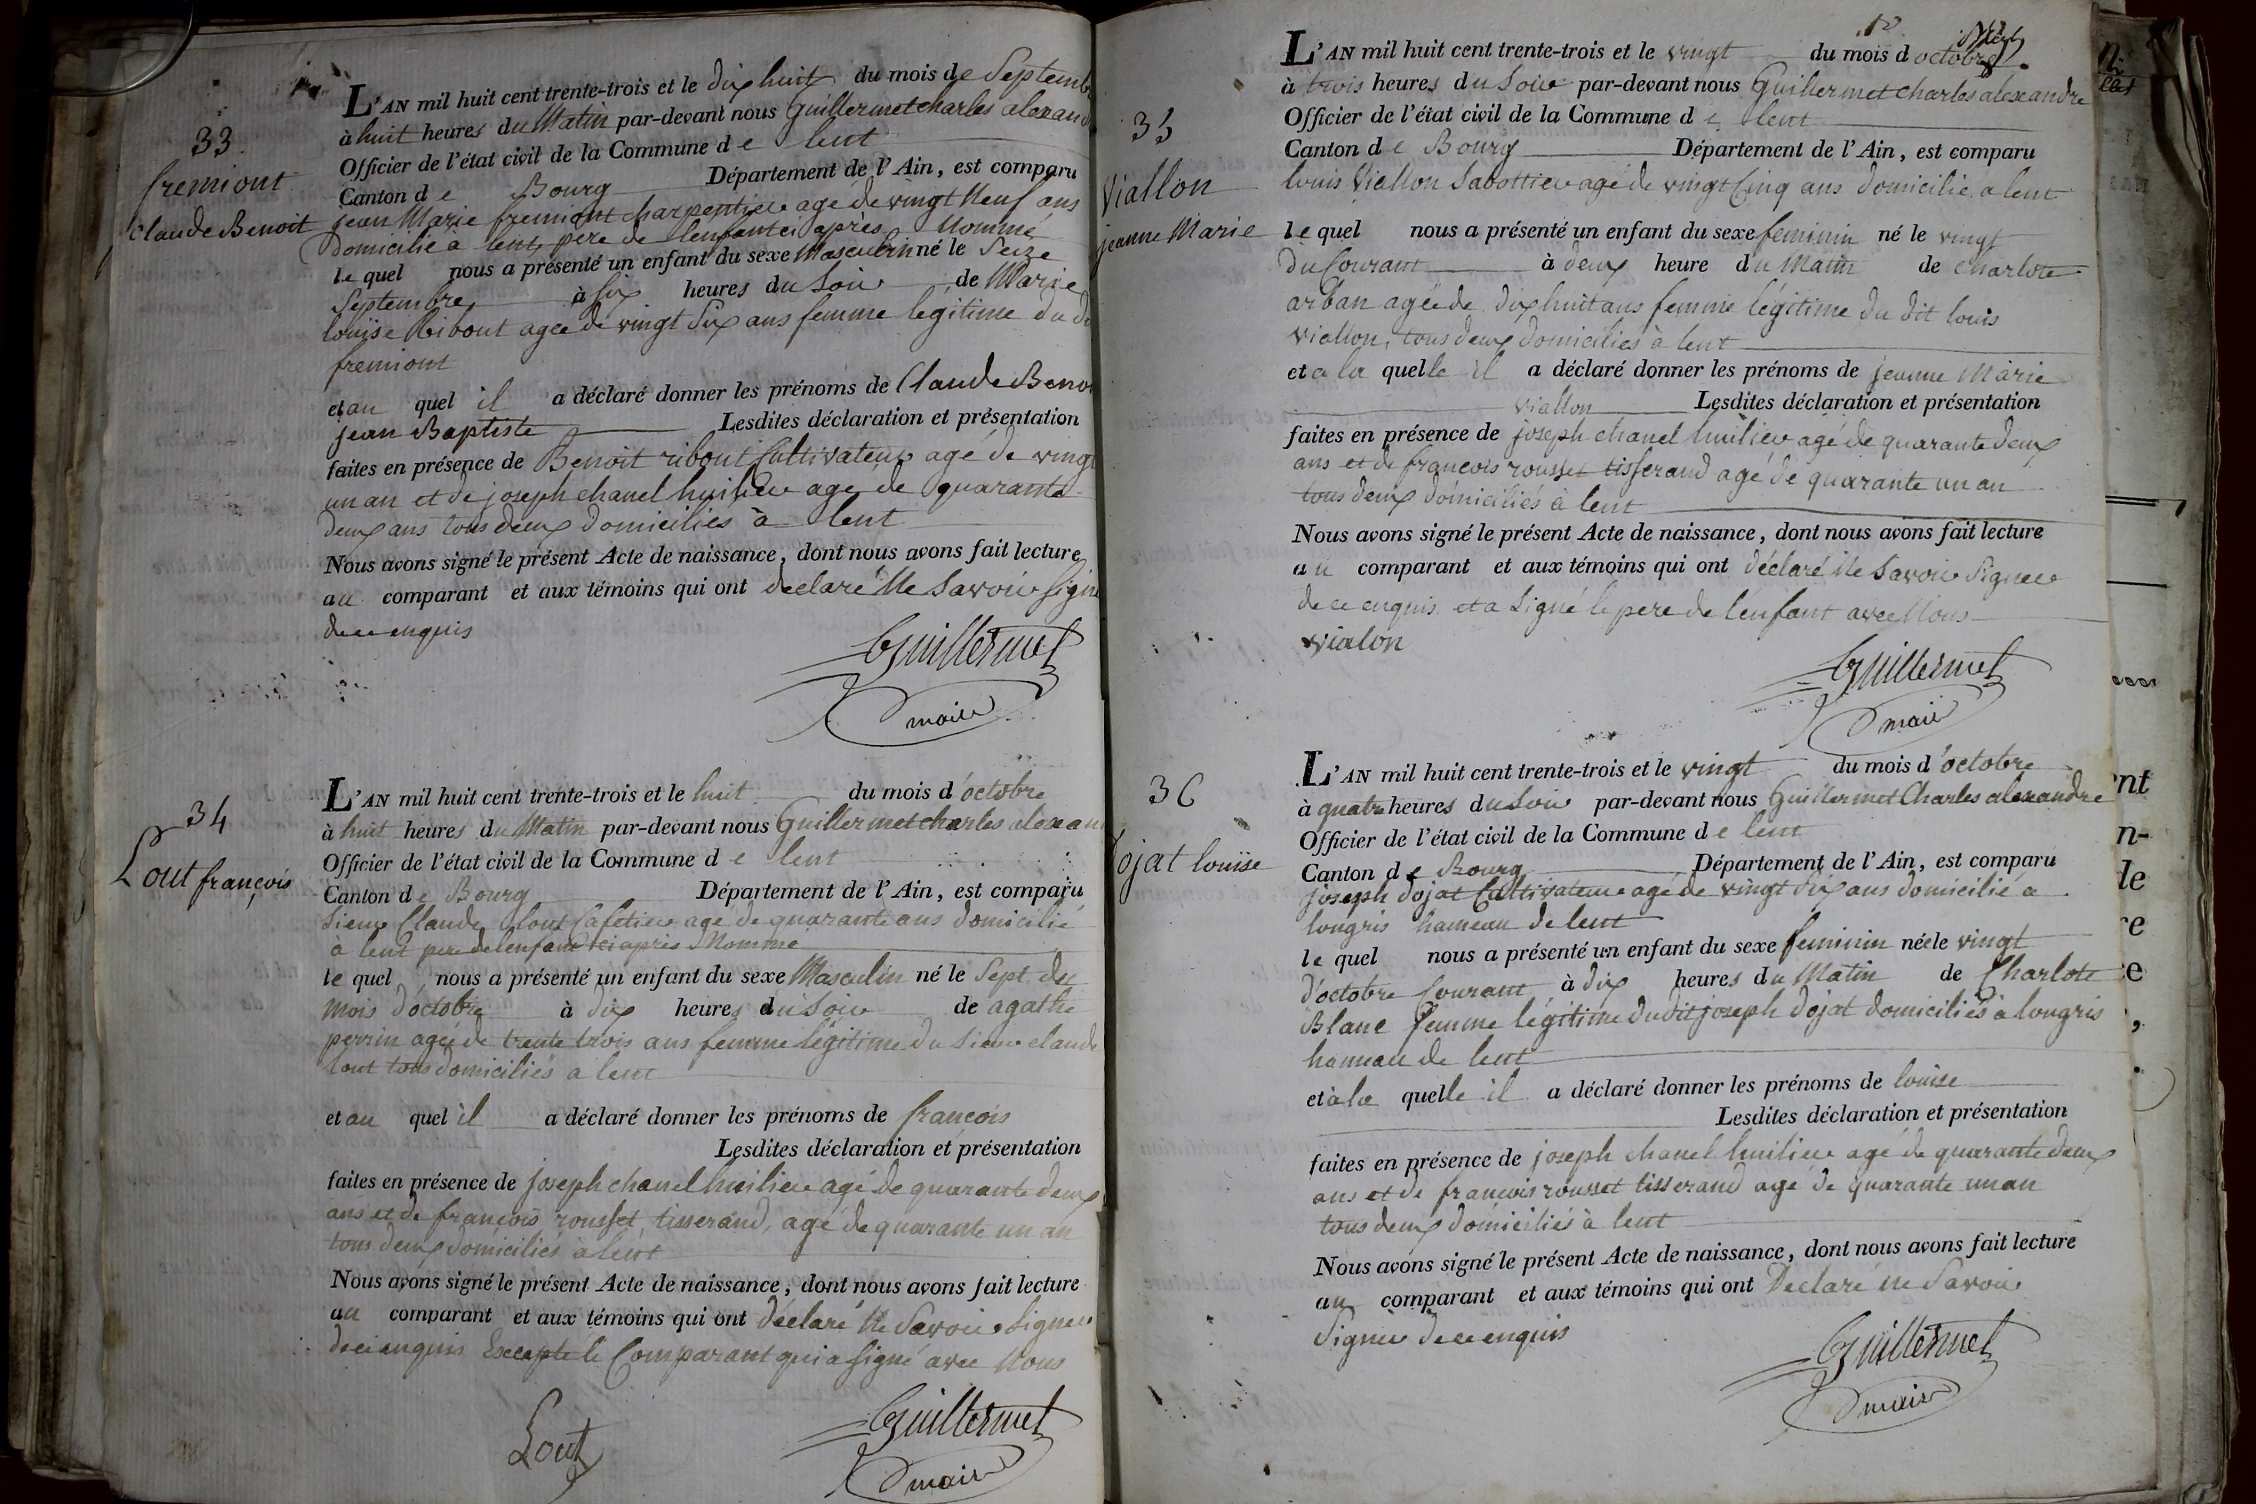 33.
fremiont
Claude Benoit
L'AN mil huit cent trente-trois et le dix huit du mois de Septemb
à huit heures du Matin par-devant nous Guillermet charles alexand
Officier de l'état civil de la Commune de lent
Canton de Bourg Département de l'Ain, est comparu
jean Marie fremiont charpentier agé de vingt Neuf ans
Domicilié à lent, père de l'enfant ci après Nommé
le quel nous a présenté un enfant du sexe Masculin né le Seize
Septembre à six heures du Soir de Marie
louise Ribout agée de vingt Six ans femme légitime du di
fremiont
et au quel il a déclaré donner les prénoms de Claude Beno
jean Baptiste Lesdites déclaration et présentation
faites en présence de Benoit ribout Cultivateur agé de vingt
un an et de joseph chanel huilier age de quarante
deux ans tous deux domiciliés à lent
Nous avons signé le présent Acte de naissance, dont nous avons fait lecture
au comparant et aux témoins qui ont declaré Ne Savoir Signe
de ce enquis
Guillermet
maire
34
Lout françois
L'AN mil huit cent trente-trois et le huit du mois d'octobre
à huit heures du Matin par-devant nous Guillermet charles alexan
Officier de l'état civil de la Commune de lent
Canton de Bourg Département de l'Ain, est comparu
Sieur Claude Lout Cafetier age de quarante ans domicilié
a lent père de lenfant ci après Nommé
le quel nous a présenté un enfant du sexe Masculin né le Sept du
Mois d'octobre à dix heures du Soir de agathe
perrin agée de trente trois ans femme légitime du Sieur claude
Lout tous domiciliés a lent
et au quel il a déclaré donner les prénoms de françois
Lesdites déclaration et présentation
faites en présence de joseph chanel huilier agé de quarante deux
ans et de françois rousset tisserand, agé de quarante un an
tous deux domiciliés à lent
Nous avons signé le présent Acte de naissance, dont nous avons fait lecture
au comparant et aux témoins qui ont déclaré Ne Savoir Signer
de ci enquis Excepte le Comparant qui a signé avec Nous
Lout
Guillermet
maire
35
Viallon
jeanne Marie
L'AN mil huit cent trente-trois et le vingt du mois d octobre
à trois heures du Soir par-devant nous Guillermet Charles alexandre
Officier de l'état civil de la Commune de lent
Canton de Bourg Département de l'Ain, est comparu
louis Viallon Sabottier agé de vingt Cinq ans domicilié a lent
le quel nous a présenté un enfant du sexe feminin né le vingt
du Courant à deux heure du Matin de charlote
arban agée de dix huit ans femme légitime du dit louis
viallon, tous deux domiciliés à lent
et a la quelle il a déclaré donner les prénoms de jeanne Marie
viallon Lesdites déclaration et présentation
faites en présence de joseph chanel huilier agé de quarante deux
ans et de françois rousset tisserand agé de quarante un an
tous deux domiciliés à lent
Nous avons signé le présent Acte de naissance, dont nous avons fait lecture
au comparant et aux témoins qui ont déclaré Ne Savoir Signer
de ce enquis et a Signé le pere de l'enfant avec Nous
vialon
Guillermet
maire
36
Dojat louise
L'AN mil huit cent trente-trois et le vingt du mois d'octobre
à quatre heures du Soir par-devant nous Guillermet Charles alexandre
Officier de l'état civil de la Commune de lent
Canton de Bourg Département de l'Ain, est comparu
joseph dojat Cultivateur agé de vingt Six ans domicilié a
longris hameau de lent
le quel nous a présenté un enfant du sexe feminin née le vingt
d'octobre Courant à dix heures du Matin de Charlote
Blanc femme légitime du dit joseph dojat domiciliés à longris
hameau de lent
et à la quelle il a déclaré donner les prénoms de louise
Lesdites déclaration et présentation
faites en présence de joseph chanel huilier agé de quarante deux
ans et de francois rousset tisserand agé de quarante un an
tous deux domiciliés à lent
Nous avons signé le présent Acte de naissance, dont nous avons fait lecture
au comparant et aux témoins qui ont Declaré ne Savoir
Signer de ce enquis
Guillermet
maire